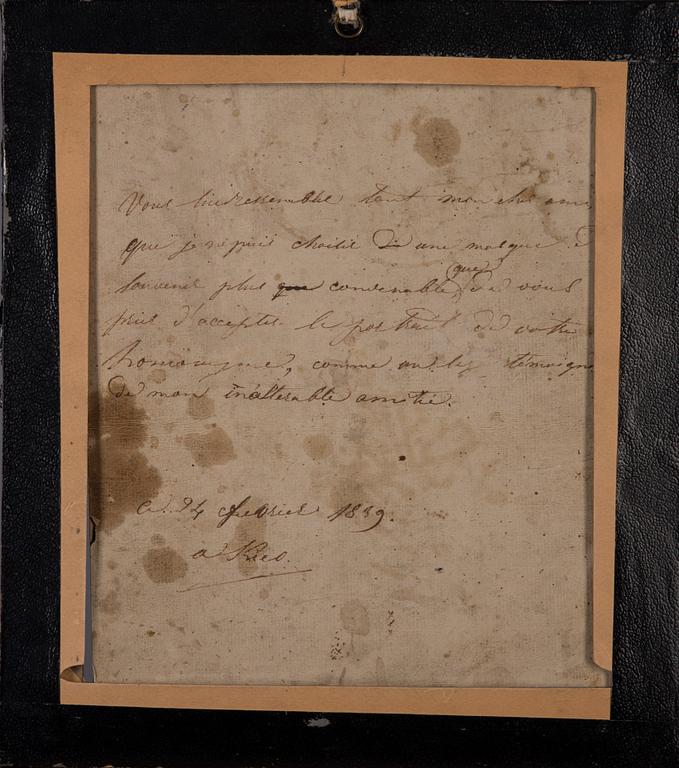 Vous lui ressemblez tant mon cher ami
que je n'puis choisir d'une marque de
souvenir plus convenable, que de vous
prier d'accepter le portrait de votre
homonyme, comme un témoigna
de mon inaltérable amitié.
24 fevrier 1839.
a Kieo.